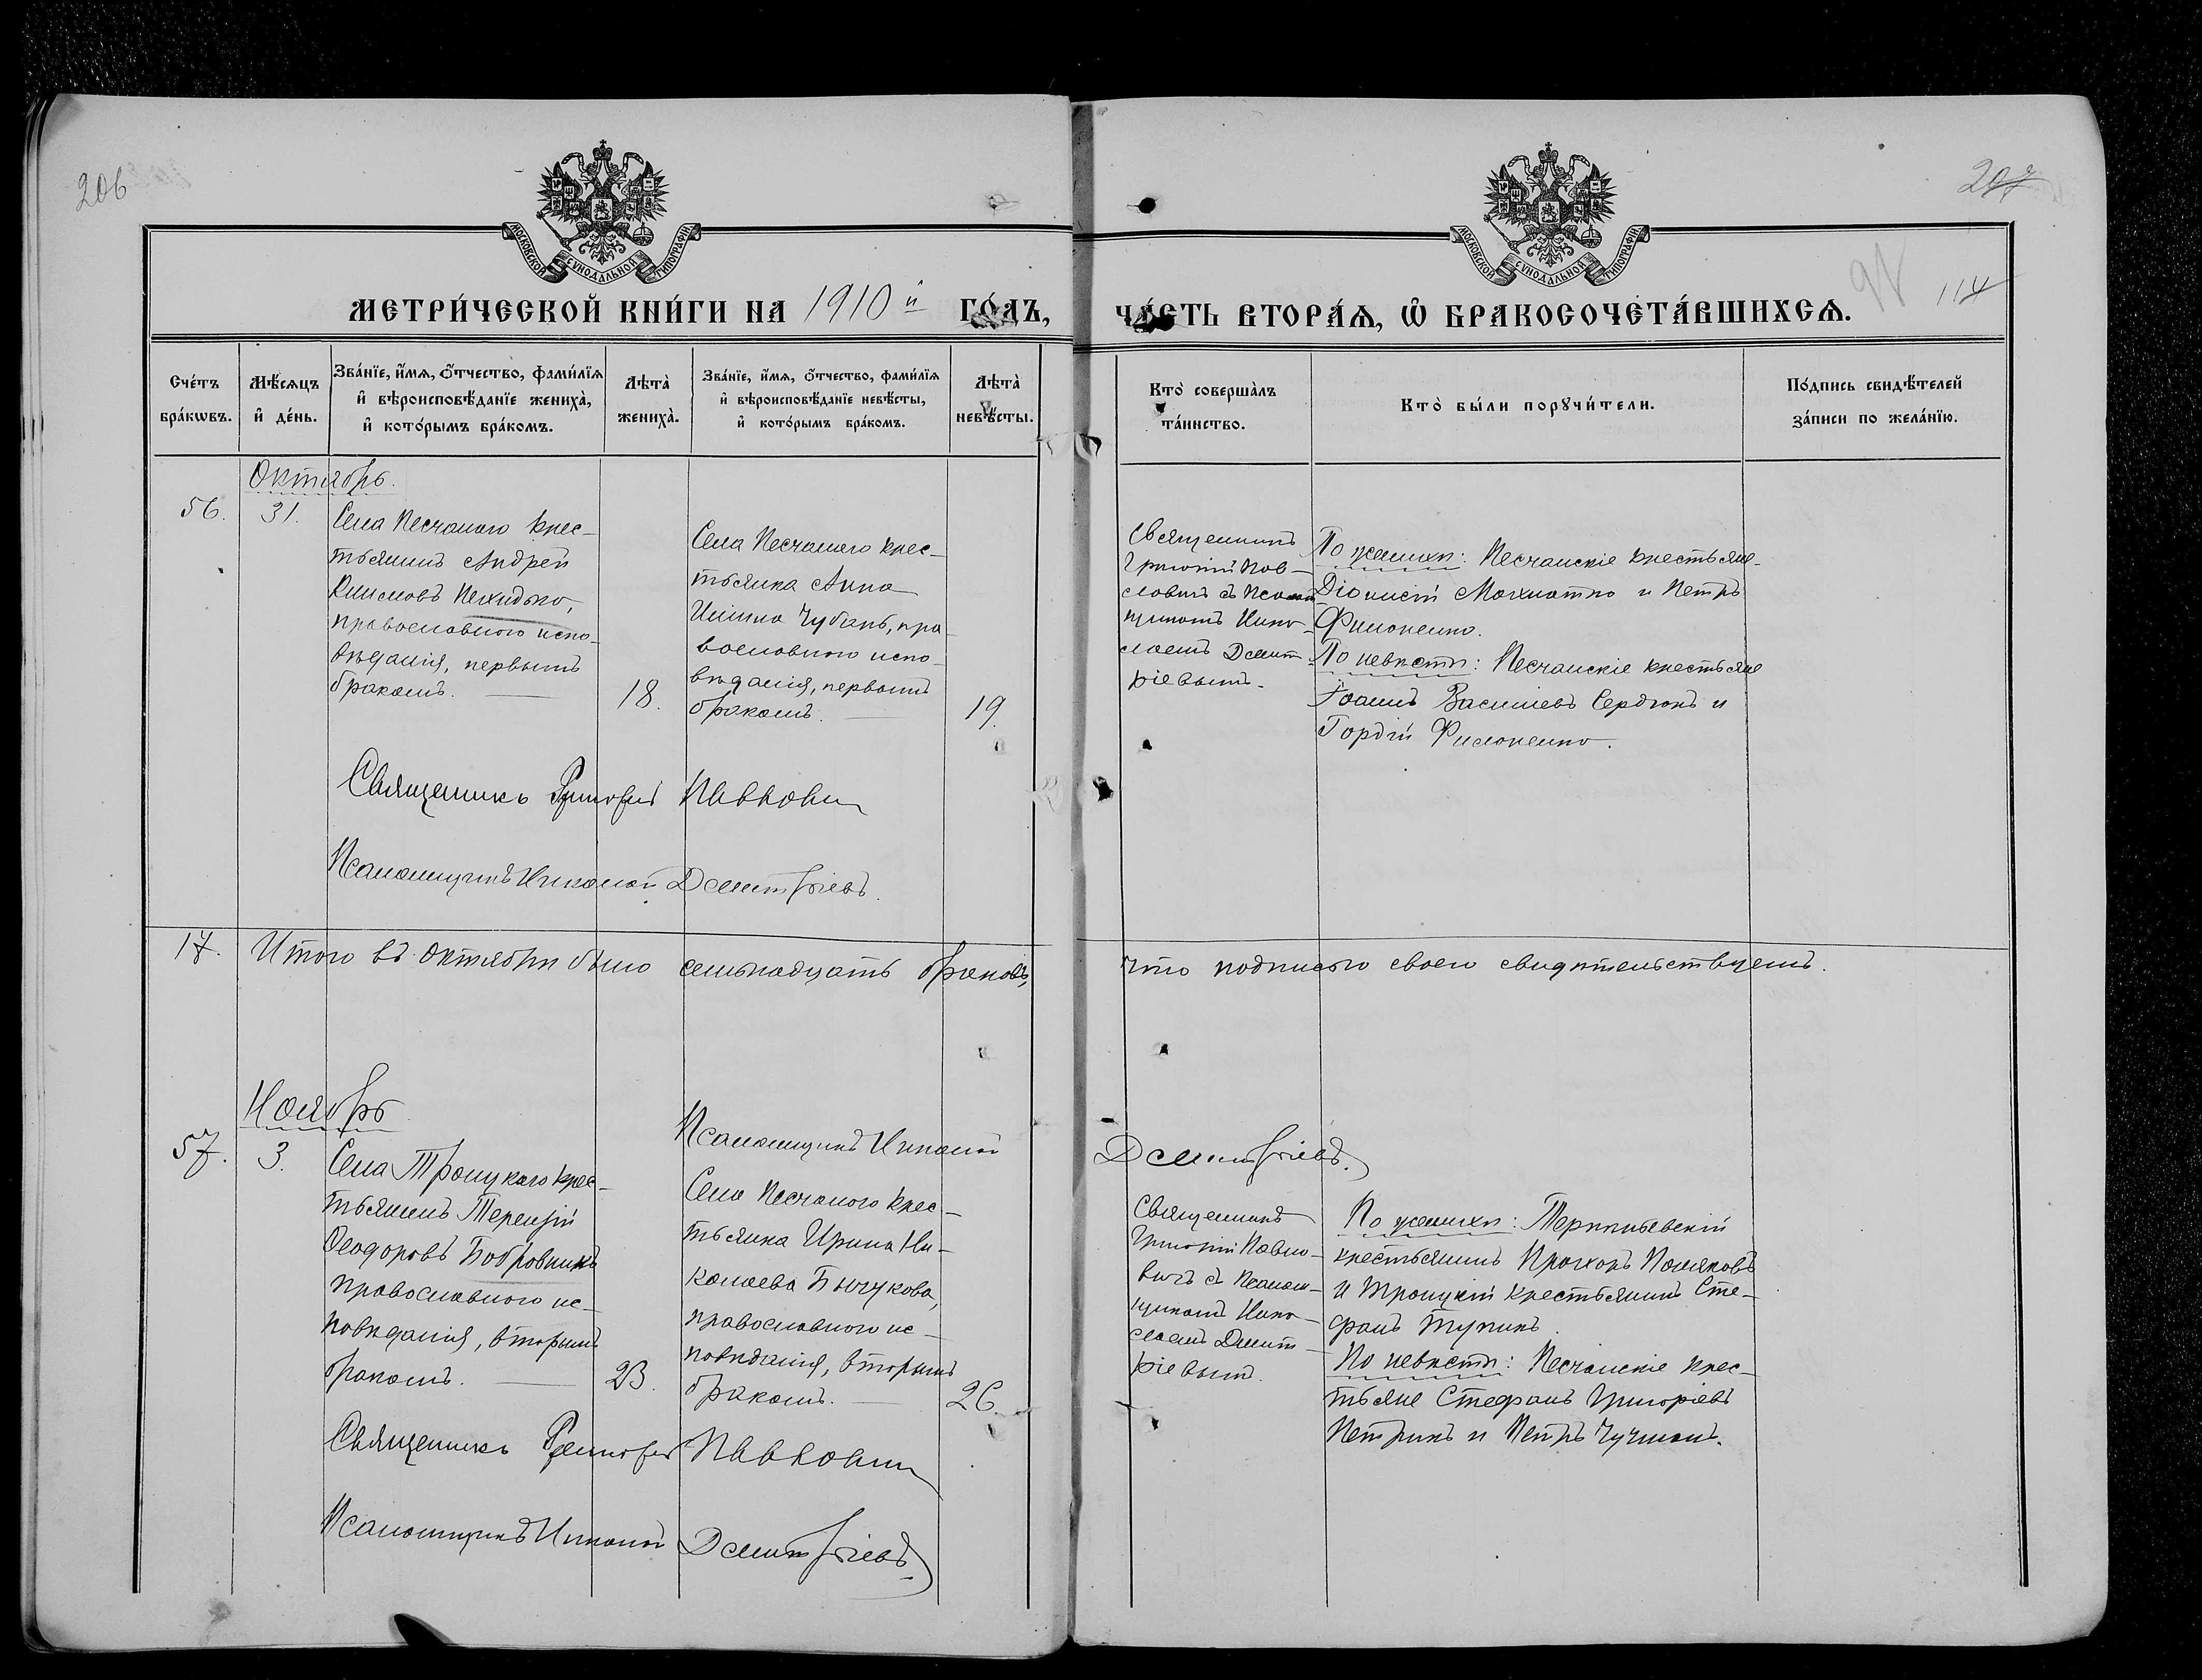 206
207
98
114
МОСКОВСКОЙ СУНОДАЛЬНОЙ ТИПОГРАФІИ
МОСКОВСКОЙ СУНОДАЛЬНОЙ ТИПОГРАФІИ
МЕТРИ́ЧЕСКОЙ КНИ́ГИ НА 1910й ГО́ДЪ,
ЧА́СТЬ ВТОРА́Ѧ, Ѽ БРАКОСОЧЕТА́ВШИХСѦ.
Сче́тъ
бра́кѡвъ.
Мѣ́сѧцъ
и҆ де́нь.
Зва́нїе, и҆́мѧ, ѻ҆́тчество, фами́лїѧ
и҆ вѣроисповѣ́данїе жениха̀,
и҆ кото́рымъ бра́комъ.
Лѣта̀
жениха̀.
Зва́нїе, и҆́мѧ, ѻ҆́тчество, фами́лїѧ
и҆ вѣроисповѣ́данїе невѣ́сты,
и҆ кото́рымъ бра́комъ.
Лѣта̀
невѣ́сты.
Кто̀ соверша́лъ
та́инство.
Кто̀ бы́ли порꙋчи́тели.
По́дпись свидѣ́телей
за́писи по жела́нїю.
Октябрь.
56.
31.
Села Песчаного крес-
тьянинъ Андрей
Климовъ Нехидько,
православнаго испо-
вѣданія, первымъ
бракомъ.
18.
Села Песчаного крес-
тьянка Анна
Ильина Чубань, пра-
вославного испо-
вѣданія, первымъ
бракомъ.
19.
Священникъ
Григорій Пав-
ловичъ съ Псалом
щикомъ Нико-
лаемъ Дмит-
ріевымъ.
По женихѣ: Песчанскіе крестьяне
Діонисій Махиатко и Петръ
Филоненко.
По невѣстѣ: Песчанскіе крестьяне
Іоаннъ Васильевъ Сердюкъ и
Гордій Филоненко.
Священникъ Григорій Павловичъ
Псаломщикъ Николай Дмитріевъ.
17. Итого въ Октябрѣ было семьнадцать браковъ,
что подписью своею свидѣтельствуемъ.
Ноябрь
Псаломщикъ Николай Дмитріевъ.
57.
3.
Села Троицкаго крес-
тьянинъ Терентій
Ѳеодоровъ Бобровникъ
православного ис-
повѣданія, вторымъ
бракомъ.
23.
Села Песчаного крес-
тьянка Ирина Ни-
колаева Бычукова,
православного ис-
повѣданія, вторымъ
бракомъ.
26.
Священникъ
Григорій Павло-
вичъ съ Псалом-
щикомъ Нико-
лаемъ Дмит-
ріевымъ.
По женихѣ: Терпитьевскій
крестьянинъ Прохоръ Поляковъ
и Троицкій крестьянинъ Сте-
фанъ Тупикъ.
По невѣстѣ: Песчанскіе крес-
тьяне Стефанъ Григоріевъ
Петрикъ и Петръ Чучманъ.
Священникъ Григорій Павловичъ
Псаломщикъ Николай Дмитріевъ.